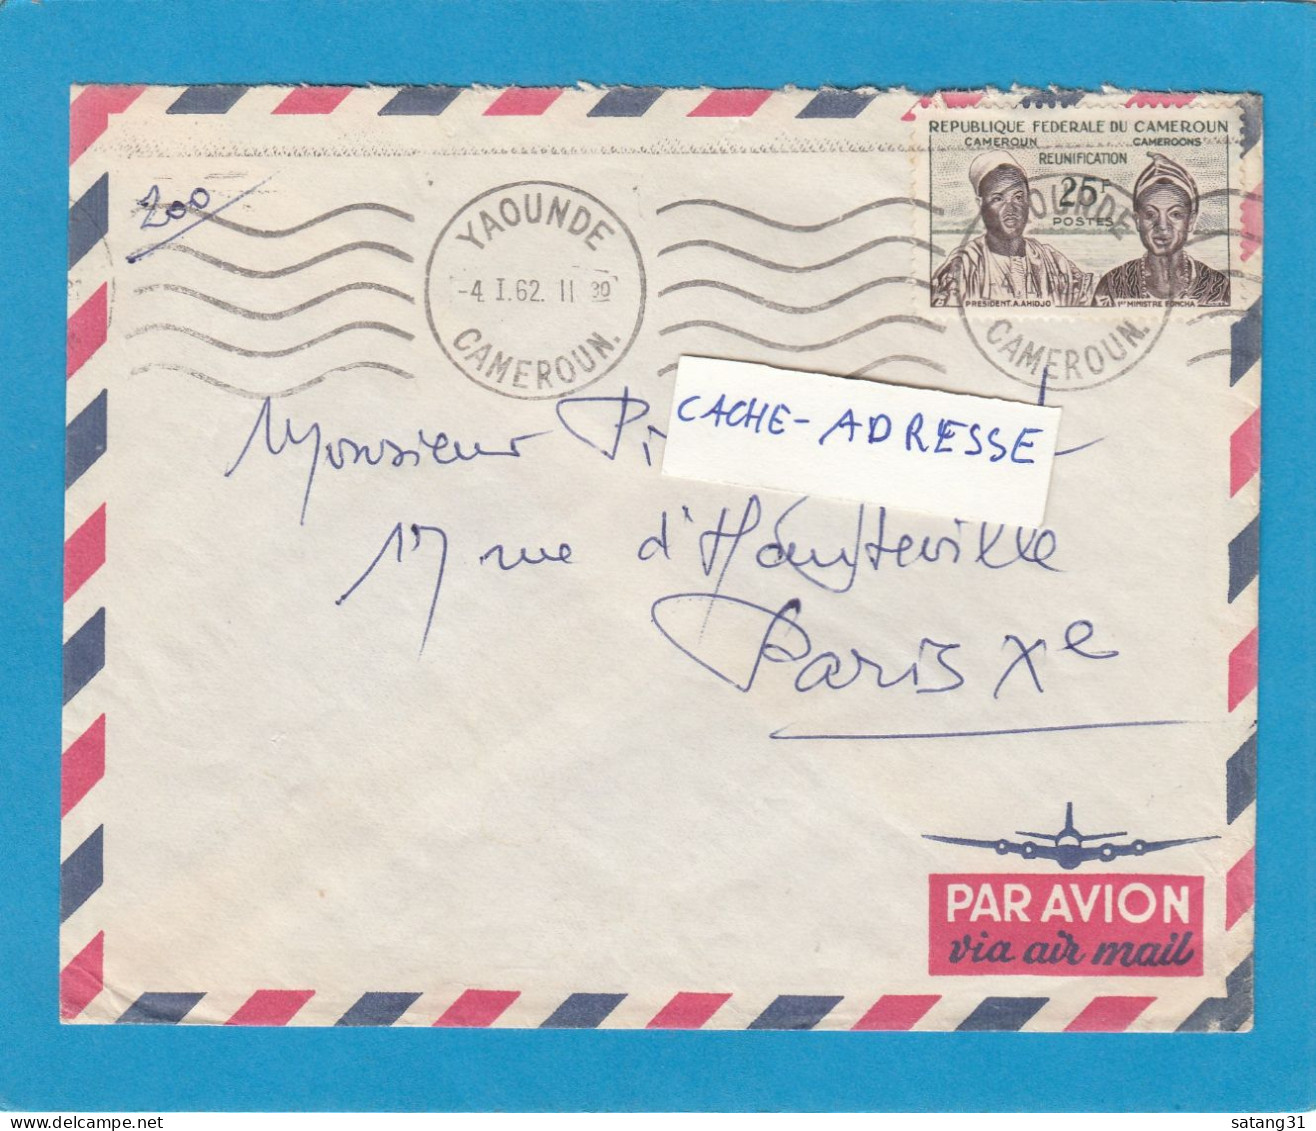 200
YAOUNDE
-4 I.62. 11 30
CAMEROUN.
REPUBLIQUE FEDERALE DU CAMEROUN
CAMEROUN CAMEROONS
REUNIFICATION
25F
POSTES
PRESIDENT.A.AHIDJO 1er MINISTRE FONCHA
CAMEROUN.
Monsieur
CACHE-ADRESSE
17 rue d'Hauteville
Paris Xe
PAR AVION
via air mail
satang31